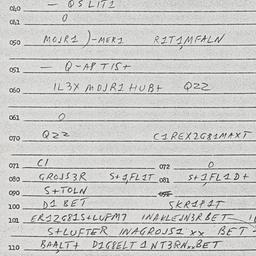 040 — QSLIT1
041 0
050 MOJR1 )-MER1 R1T1MFALN
051 — Q-AP TIS+
060 IL3X MOJR1 HUB+ QZZ
061 0
070 QZZ C1REX2G81MAXT
071 C1 072 0
080 GROJS3R S+1,FL1T 081 S+1,FL1D+
090 S+TOLN
100 D1 BET SKR1P1T
101 ER12G81S+LUFM7 INAKLEIN3RBET
S+LUFTER INAGROJS1 XX BET
110 BAALT+ D1G8ELT 1 NT3RN..BET